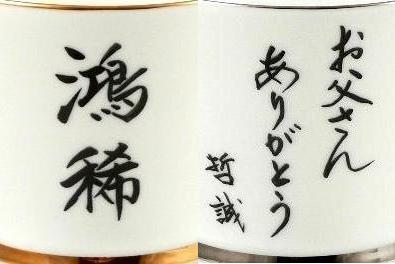 鴻稀
お父さん
ありがとう
哲誠